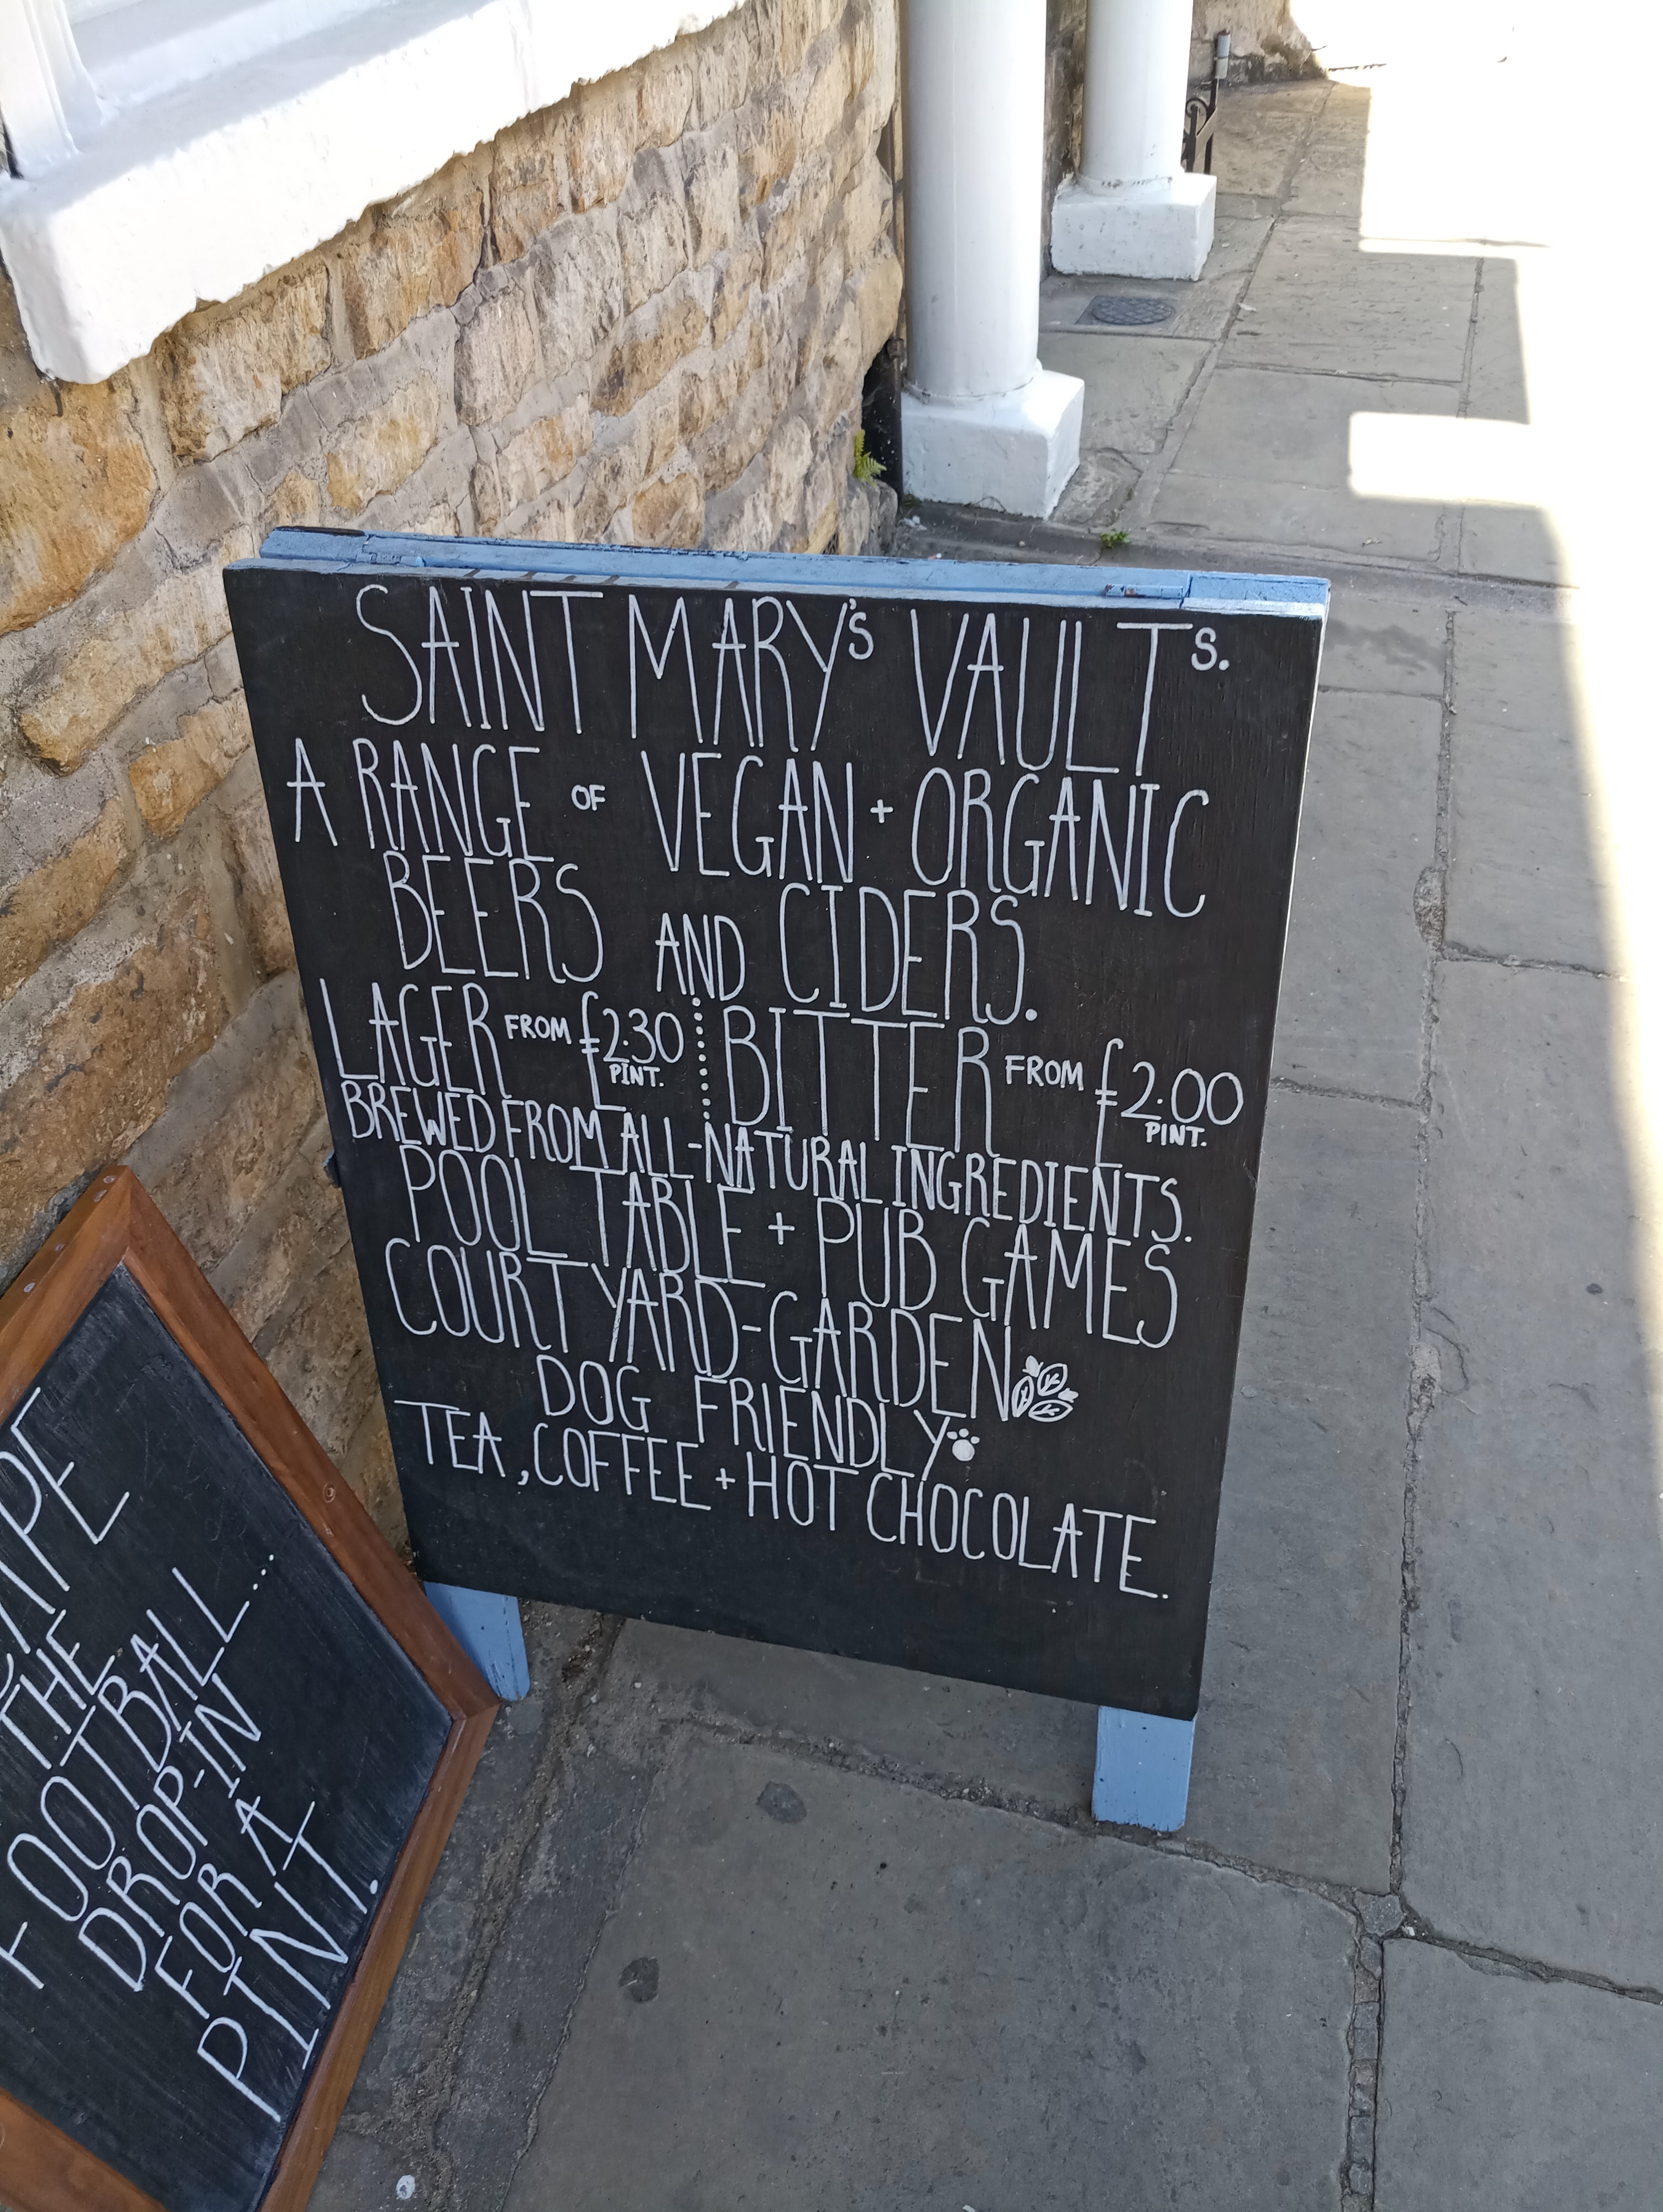 SAINT MARY'S VAULTS.
A RANGE OF VEGAN + ORGANIC
BEERS AND CIDERS.
LAGER FROM £2.30 PINT. BITTER FROM £2.00 PINT.
BREWED FROM ALL-NATURAL INGREDIENTS.
POOL TABLE + PUB GAMES
COURTYARD-GARDEN
DOG FRIENDLY
TEA, COFFEE + HOT CHOCOLATE.
THE
FOOTBALL...
DROP-IN
FOR A
PINT.